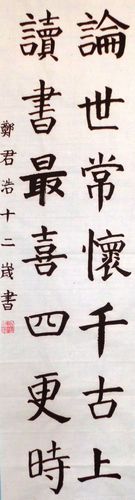 論世常懷千古上
讀書最喜四更時
鄭君浩十二歲書